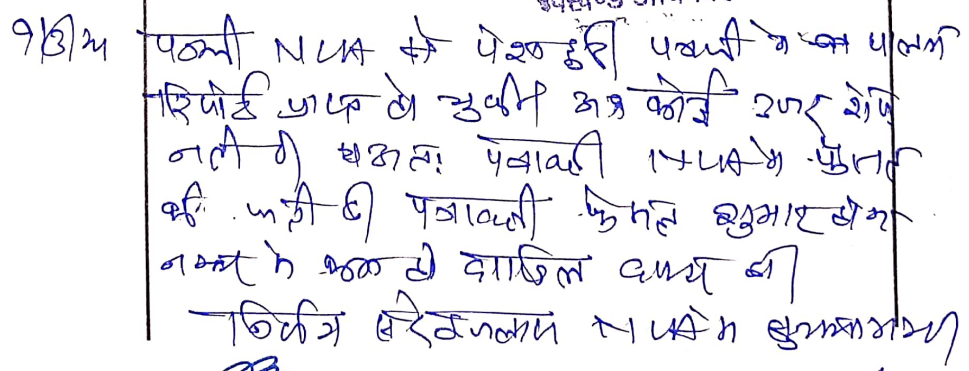 पत्रावली NUA में पेश हुई। पत्रावली में पालना
रिपोर्ट प्राप्त हो चुकी अब कोई उजर शेष
नहीं है। अतः पत्रावली NUA में फैसल
की जाती है। पत्रावली फैसल शुमार होकर
नम्बर से कम हो दाखिल दफ्तर हो।
निर्णय NUA में सुनाया गया।